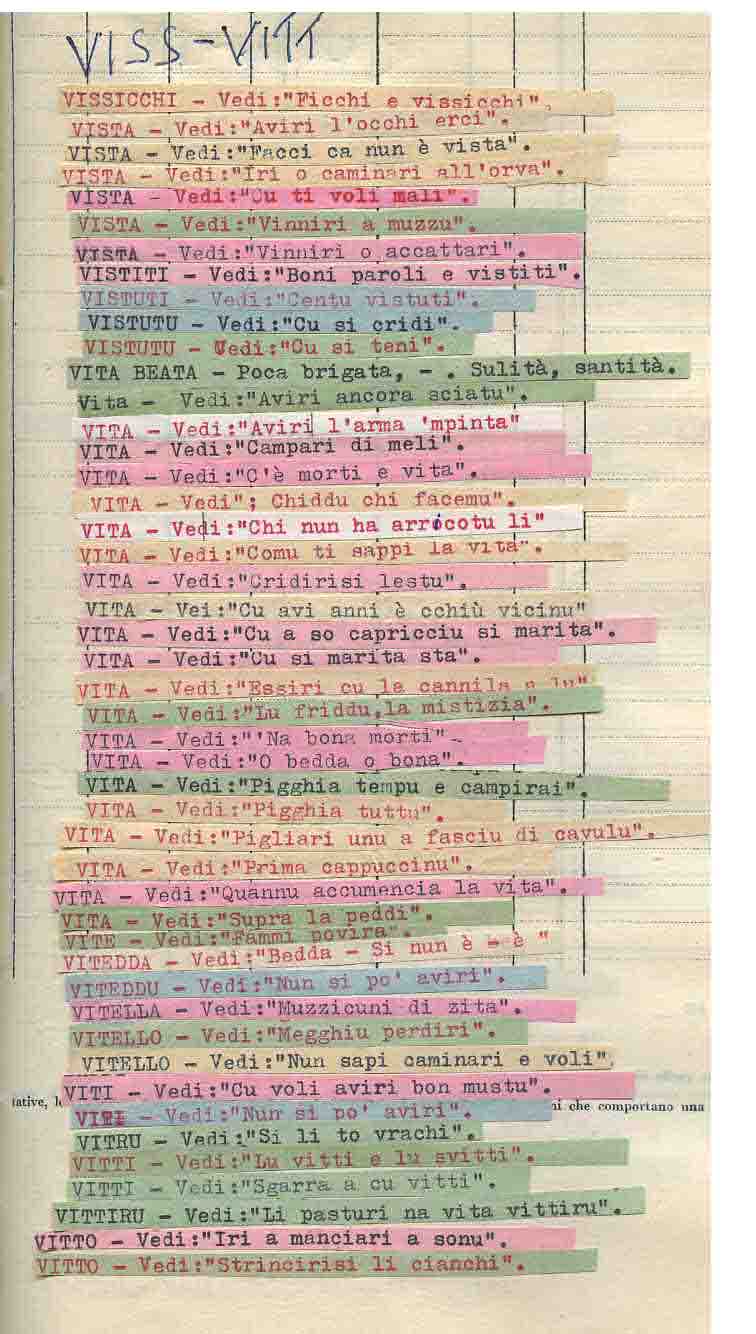 VISS-VITT
VISSICCHI - Vedi:"Ficchi e vissicchi",
VISTA - Vedi:"Aviri l'occhi erci".
VISTA - Vedi:"Facci ca nun è vista".
VISTA - Vedi:"Iri o caminari all'orva".
VISTA - Vedi:"Cu ti voli mali".
VISTA - Vedi:"Vinniri a muzzu".
VISTA - Vedi:"Vinniri o accattari".
VISTITI - Vedi:"Boni paroli e vistiti".
VISTUTI - Vedi:"Centu vistuti".
VISTUTU - Vedi:"Cu si cridi".
VISTUTU - Vedi:"Cu si teni".
VITA BEATA - Poca brigata, - . Sulità, santità.
Vita - Vedi:"Aviri ancora sciatu".
VITA - Vedi:"Aviri l'arma 'mpinta"
VITA - Vedi:"Campari di meli".
VITA - Vedi:"C'è morti e vita".
VITA - Vedi"; Chiddu chi facemu".
VITA - Vedi:"Chi nun ha arricotu li"
VITA - Vedi:"Comu ti sappi la vita".
VITA - Vedi:"Cridirisi lestu".
VITA - Vei:"Cu avi anni è cchiù vicinu"
VITA - Vedi:"Cu a so capricciu si marita".
VITA - Vedi:"Cu si marita sta".
VITA - Vedi:"Essiri cu la cannila a lu"
VITA - Vedi:"Lu friddu,la mistizia".
VITA - Vedi:"'Na bona morti"-
VITA - Vedi:"O bedda o bona".
VITA - Vedi:"Pigghia tempu e campirai".
VITA - Vedi:"Pigghia tuttu".
VITA - Vedi:"Pigliari unu a fasciu di cavulu".
VITA - Vedi:"Prima cappuccinu".
VITA - Vedi:"Quannu accumencia la vita".
VITA - Vedi:"Supra la peddi".
VITE - Vedi:"Fammi povira".
VITEDDA - Vedi:"Bedda - Si nun è - è "
VITEDDU - Vedi:"Nun si po' aviri".
VITELLA - Vedi:"Muzzicuni di zita".
VITELLO - Vedi:"Megghiu perdiri".
VITELLO - Vedi:"Nun sapi caminari e voli",
VITI - Vedi:"Cu voli aviri bon mustu".
tative, che comportano una
VITI - Vedi:"Nun si po' aviri".
VITRU - Vedi:"Si li to vrachi".
VITTI - Vedi:"Lu vitti e lu svitti".
VITTI - Vedi:"Sgarra a cu vitti".
VITTIRU - Vedi:"Li pasturi na vita vittiru".
VITTO - Vedi:"Iri a manciari a sonu".
VITTO - Vedi:"Strincirisi li cianchi".